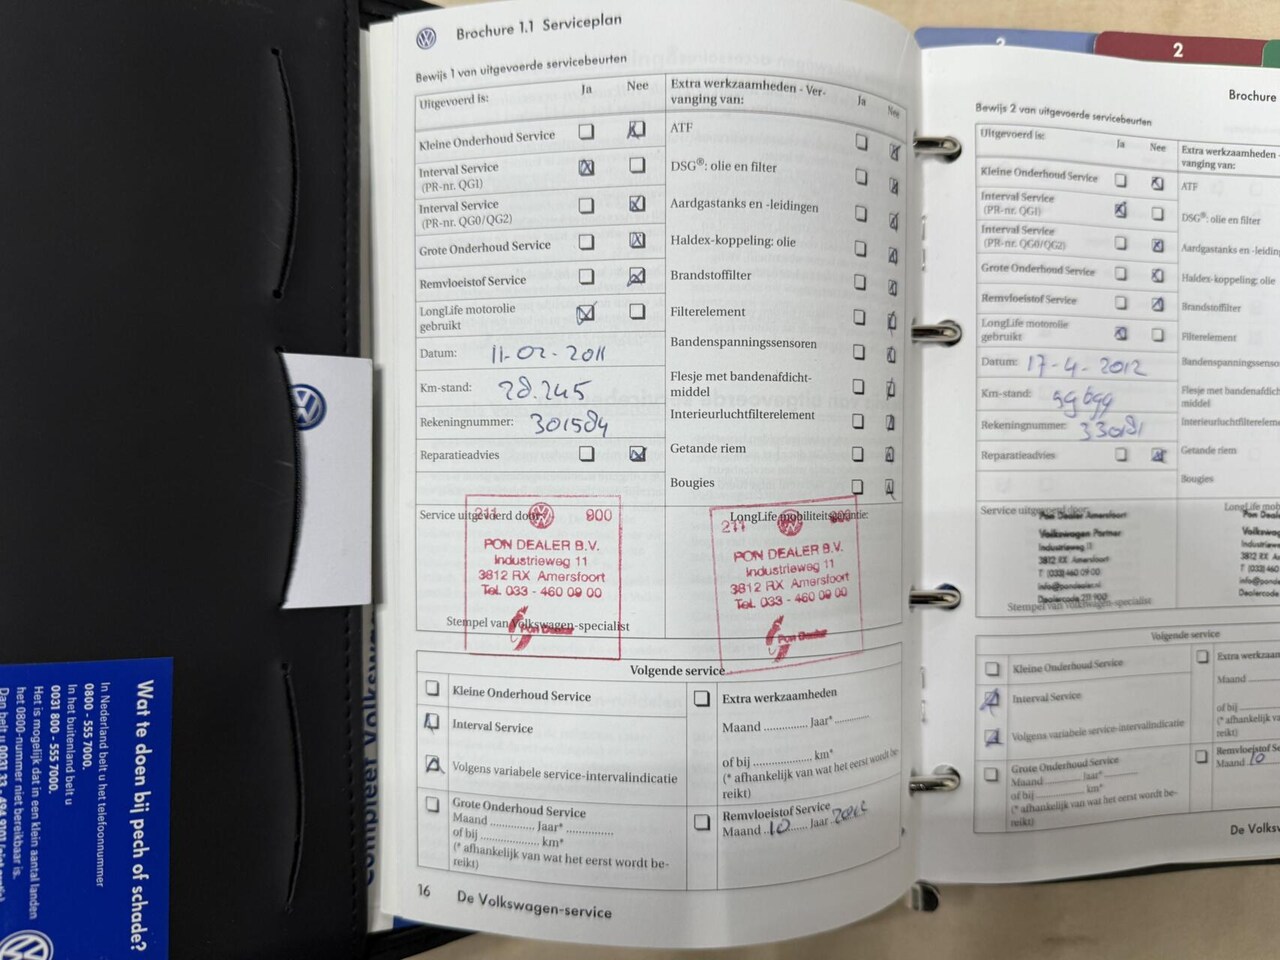 Brochure 1.1 Serviceplan
Bewijs 1 van uitgevoerde servicebeurten
Uitgevoerd is:
Ja
Nee
Kleine Onderhoud Service
Interval Service
(PR-nr. QG1)
Interval Service
(PR-nr. QG0/QG2)
Grote Onderhoud Service
Remvloeistof Service
LongLife motorolie
gebruikt
Datum: 11-02-2011
Km-stand: 28.245
Rekeningnummer: 301584
Reparatieadvies
Extra werkzaamheden - Ver-
vanging van:
Ja
Nee
ATF
DSG®: olie en filter
Aardgastanks en -leidingen
Haldex-koppeling: olie
Brandstoffilter
Filterelement
Bandenspanningssensoren
Flesje met bandenafdicht-
middel
Interieurluchtfilterelement
Getande riem
Bougies
Service uitgevoerd door:
211 900
PON DEALER B.V.
Industrieweg 11
3812 RX Amersfoort
Tel. 033 - 460 09 00
Pon Dealer
Stempel van Volkswagen-specialist
LongLife mobiliteitsgarantie:
211 900
PON DEALER B.V.
Industrieweg 11
3812 RX Amersfoort
Tel. 033 - 460 09 00
Pon Dealer
Volgende service
Kleine Onderhoud Service
Interval Service
Volgens variabele service-intervalindicatie
Grote Onderhoud Service
Maand ............ Jaar* ............
of bij ............ km*
(* afhankelijk van wat het eerst wordt be-
reikt)
Extra werkzaamheden
Maand ........... Jaar* ...........
of bij .................... km*
(* afhankelijk van wat het eerst wordt be-
reikt)
Remvloeistof Service
Maand ..10...... Jaar .2012
16 De Volkswagen-service
2
2
Brochure
Bewijs 2 van uitgevoerde servicebeurten
Uitgevoerd is:
Ja
Nee
Kleine Onderhoud Service
Interval Service
(PR-nr. QG1)
Interval Service
(PR-nr. QG0/QG2)
Grote Onderhoud Service
Remvloeistof Service
LongLife motorolie
gebruikt
Datum: 17-4-2012
Km-stand: 59699
Rekeningnummer:
Reparatieadvies
Extra werkzaamheden -
vanging van:
ATF
DSG®: olie en filter
Aardgastanks en -leiding
Haldex-koppeling: olie
Brandstoffilter
Filterelement
Bandenspanningssenso
Flesje met bandenafdic
middel
Interieurluchtfilterelem
Getande riem
Bougies
Service uitgevoerd door:
Pon Dealer Amersfoort
Volkswagen Partner
Industrieweg 11
3812 RX Amersfoort
T (033) 460 09 00
info@pondealer.nl
Dealercode 211 900
Stempel van Volkswagen-specialist
LongLife mob
Pon Dealer
Volkswag
Industriew
3812 RX
T (033) 46
info@pond
Dealercode
Volgende service
Kleine Onderhoud Service
Interval Service
Volgens variabele service-intervalindicatie
Grote Onderhoud Service
Maand ............ Jaar* ............
of bij ............ km*
(* afhankelijk van wat het eerst wordt be-
reikt)
Extra werkzaam
Maand
of bij
(* afhankelijk va
reikt)
Remvloeistof Se
Maand 10
De Volksw
Compleet Volkswage
Wat te doen bij pech of schade?
In Nederland belt u het telefoonnummer
0800 - 555 7000.
In het buitenland belt u
0031 800 - 555 7000.
Het is mogelijk dat in een klein aantal landen
het 0800-nummer niet bereikbaar is.
Dan belt u 0031 33 - 494